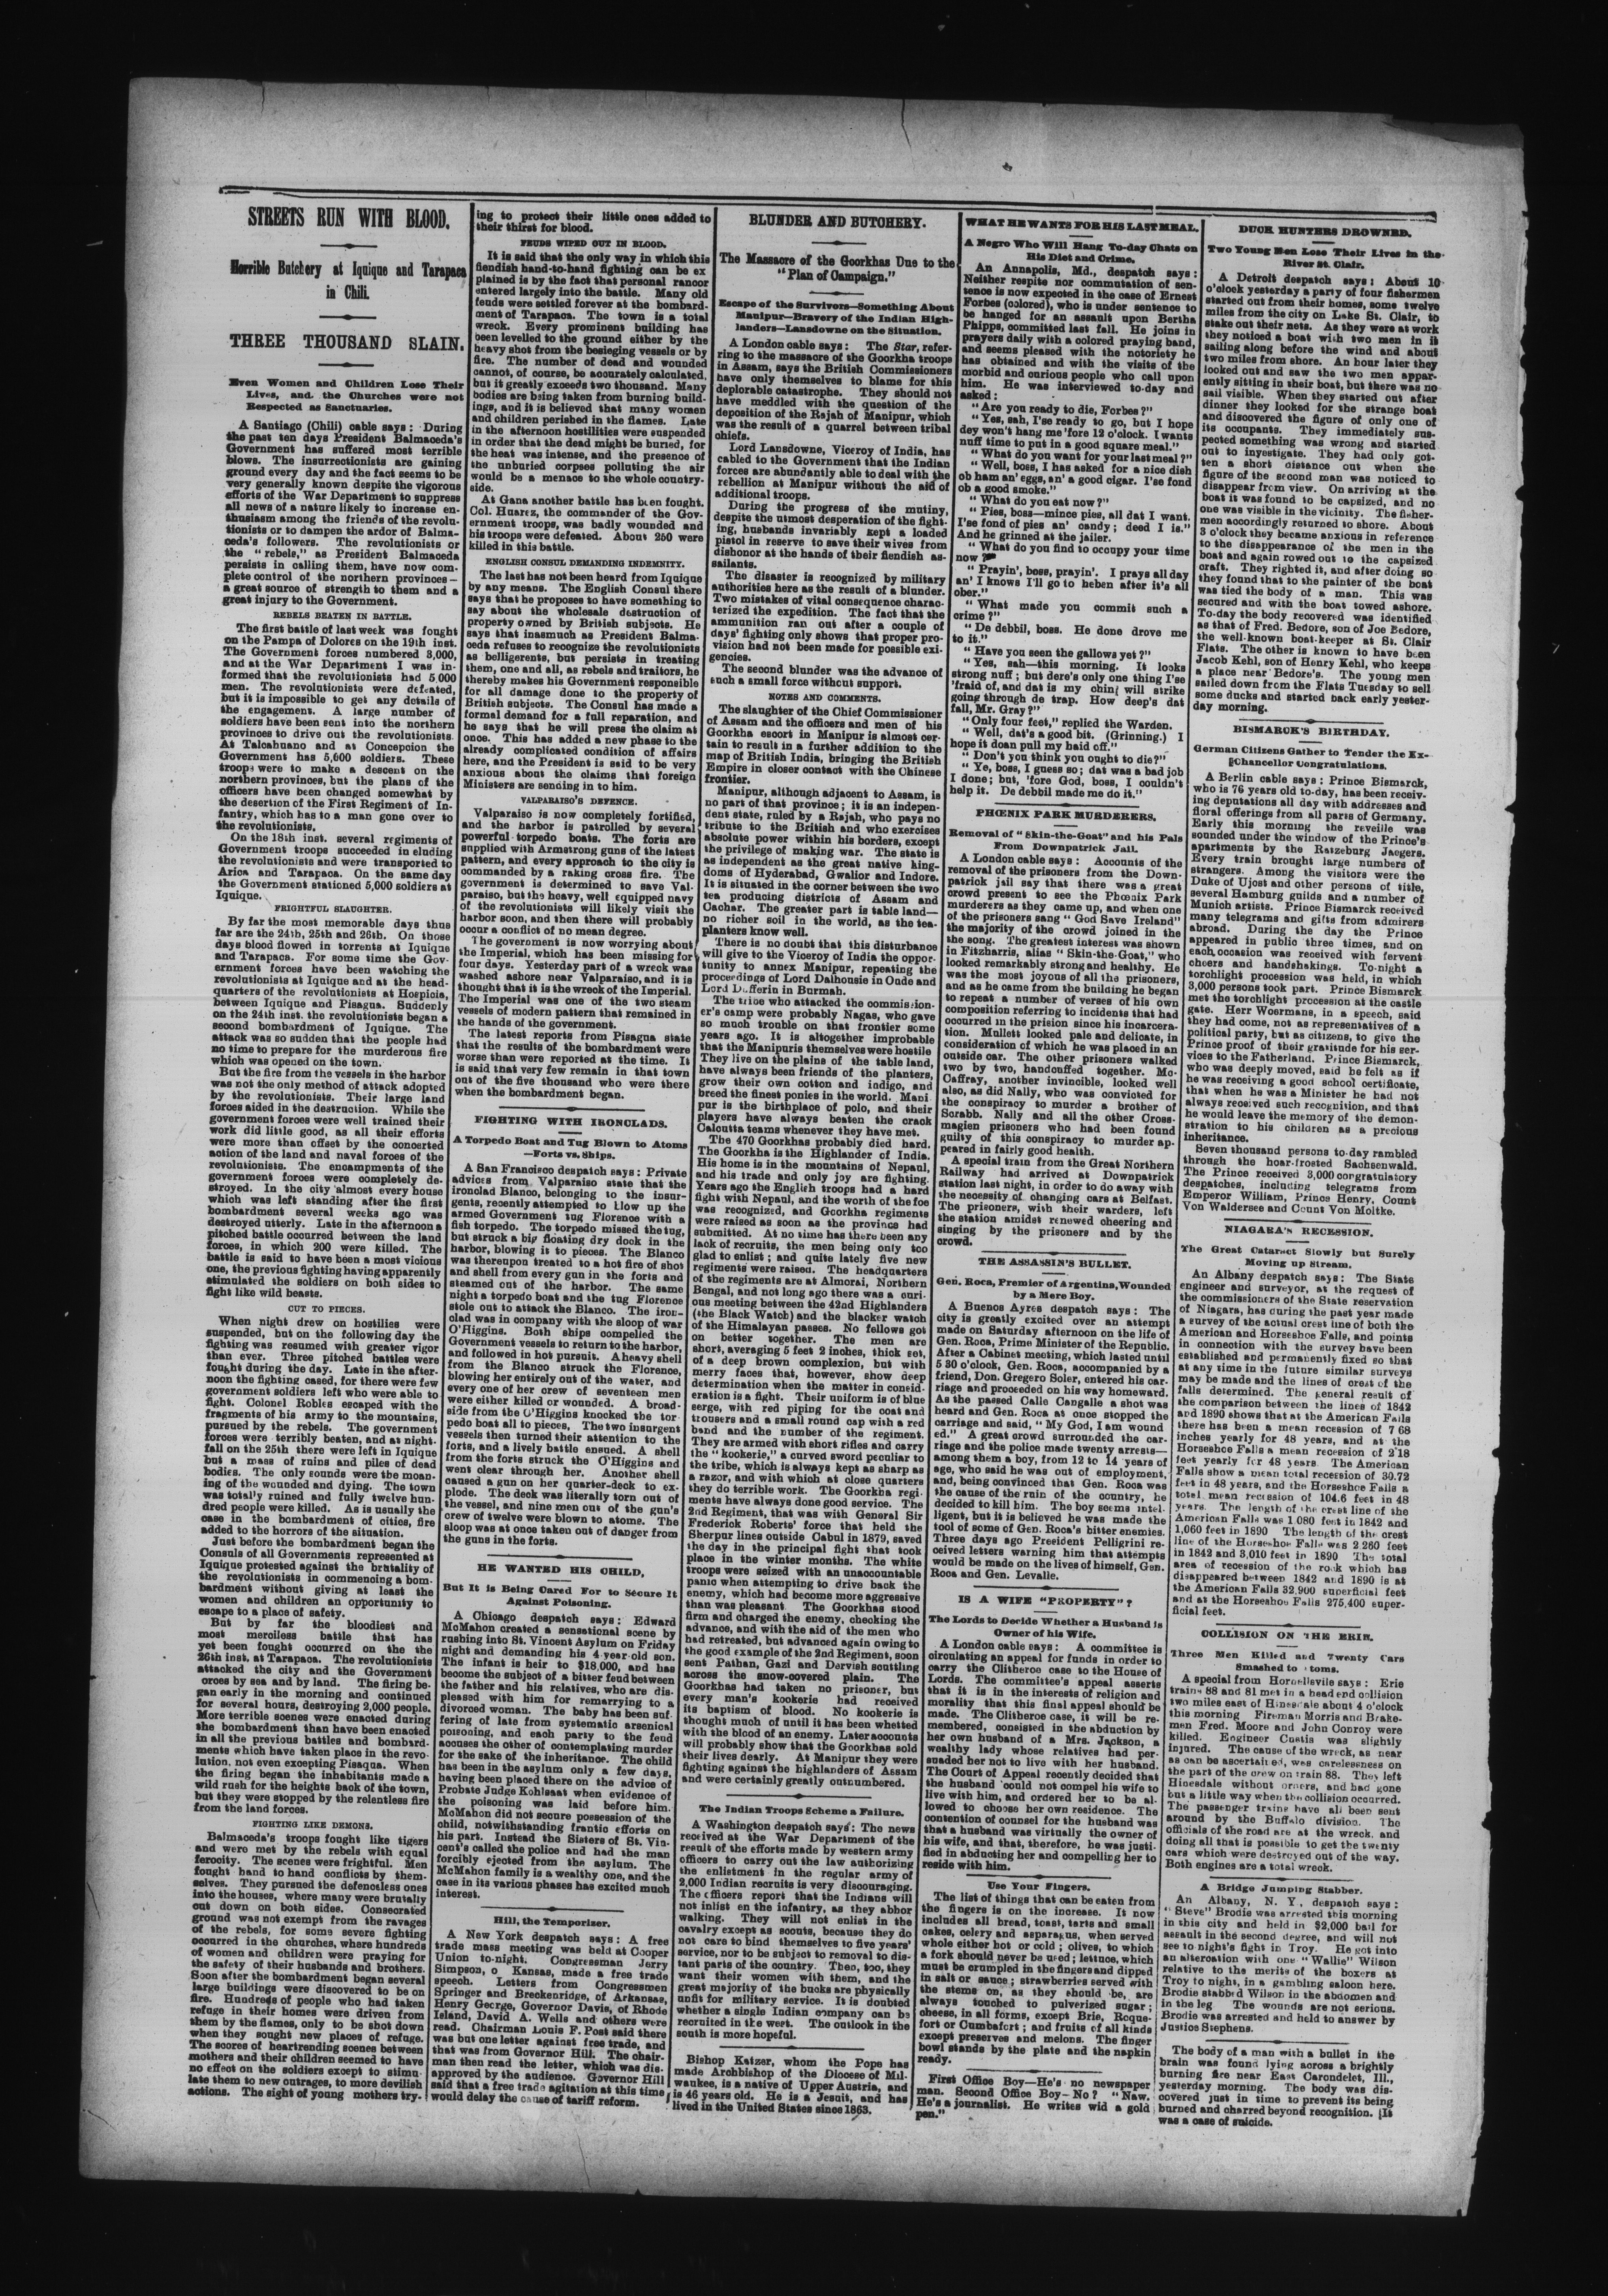 STREETS RUN WITH BLOOD.
Horrible Butchery at Iquique and Tarapaca
in Chili.
THREE THOUSAND SLAIN.
Even Women and Children Lose Their
Lives, and the Churches were not
Respected as Sanctuaries.
A Santiago (Chili) cable says: During
the past ten days President Balmaceda's
Government has suffered most terrible
blows. The insurrectionists are gaining
ground every day and the fact seems to be
very generally known despite the vigorous
efforts of the War Department to suppress
all news of a nature likely to increase en-
thusiasm among the friends of the revolu-
tionists or to dampen the ardor of Balma-
ceda's followers. The revolutionists or
the "rebels," as President Balmaceda
persists in calling them, have now com-
plete control of the northern provinces—
a great source of strength to them and a
great injury to the Government.
REBELS BEATEN IN BATTLE.
The first battle of last week was fought
on the Pampa of Dolores on the 19th inst.
The Government forces numbered 3,000,
and at the War Department I was in-
formed that the revolutionists had 5,000
men. The revolutionists were defeated,
but it is impossible to get any details of
the engagement. A large number of
soldiers have been sent into the northern
provinces to drive out the revolutionists.
At Talcahuano and at Concepcion the
Government has 5,600 soldiers. These
troops were to make a descent on the
northern provinces, but the plans of the
officers have been changed somewhat by
the desertion of the First Regiment of In-
fantry, which has to a man gone over to
the revolutionists.
On the 18th inst. several regiments of
Government troops succeeded in eluding
the revolutionists and were transported to
Arica and Tarapaca. On the same day
the Government stationed 5,000 soldiers at
Iquique.
FRIGHTFUL SLAUGHTER.
By far the most memorable days thus
far are the 24th, 25th and 26th. On those
days blood flowed in torrents at Iquique
and Tarapaca. For some time the Gov-
ernment forces have been watching the
revolutionists at Iquique and at the head-
quarters of the revolutionists at Hospicia,
between Iquique and Pisagua. Suddenly
on the 24th inst. the revolutionists began a
second bombardment of Iquique. The
attack was so sudden that the people had
no time to prepare for the murderous fire
which was opened on the town.
But the fire from the vessels in the harbor
was not the only method of attack adopted
by the revolutionists. Their large land
forces aided in the destruction. While the
government forces were well trained their
work did little good, as all their efforts
were more than offset by the concerted
action of the land and naval forces of the
revolutionists. The encampments of the
government forces were completely de-
stroyed. In the city almost every house
which was left standing after the first
bombardment several weeks ago was
destroyed utterly. Late in the afternoon a
pitched battle occurred between the land
forces, in which 200 were killed. The
battle is said to have been a most vicious
one, the previous fighting having apparently
stimulated the soldiers on both sides to
fight like wild beasts.
CUT TO PIECES.
When night drew on hostilies were
suspended, but on the following day the
fighting was resumed with greater vigor
than ever. Three pitched battles were
fought during the day. Late in the after-
noon the fighting cased, for there were few
government soldiers left who were able to
fight. Colonel Robles escaped with the
fragments of his army to the mountains,
pursued by the rebels. The government
forces were terribly beaten, and at night-
fall on the 25th there were left in Iquique
but a mass of ruins and piles of dead
bodies. The only sounds were the moan-
ing of the wounded and dying. The town
was totally ruined and fully twelve hun-
dred people were killed. As is usually the
case in the bombardment of cities, fire
added to the horrors of the situation.
Just before the bombardment began the
Consuls of all Governments represented at
Iquique protested against the brutality of
the revolutionists in commencing a bom-
bardment without giving at least the
women and children an opportunity to
escape to a place of safety.
But by far the bloodiest and
most merciless battle that has
yet been fought occurred on the the
26th inst. at Tarapaca. The revolutionists
attacked the city and the Government
orces by sea and by land. The firing be-
gan early in the morning and continued
for several hours, destroying 2,000 people.
More terrible scenes were enacted during
the bombardment than have been enacted
in all the previous battles and bombard-
ments which have taken place in the revo-
lution, not even excepting Pisaqua. When
the firing began the inhabitants made a
wild rush for the heights back of the town,
but they were stopped by the relentless fire
from the land forces.
FIGHTING LIKE DEMONS.
Balmaceda's troops fought like tigers
and were met by the rebels with equal
ferocity. The scenes were frightful. Men
fought hand to hand conflicts by them-
selves. They pursued the defenceless ones
into the houses, where many were brutally
cut down on both sides. Consecrated
ground was not exempt from the ravages
of the rebels, for some severe fighting
occurred in the churches, where hundreds
of women and children were praying for
the safety of their husbands and brothers.
Soon after the bombardment began several
large buildings were discovered to be on
fire. Hundreds of people who had taken
refuge in their homes were driven from
them by the flames, only to be shot down
when they sought new places of refuge.
The scores of heartrending scenes between
mothers and their children seemed to have
no effect on the soldiers except to stimu-
late them to new outrages, to more devilish
actions. The sight of young mothers try-
ing to protect their little ones added to
their thirst for blood.
FEUDS WIPED OUT IN BLOOD.
It is said that the only way in which this
fiendish hand-to-hand fighting can be ex
plained is by the fact that personal rancor
entered largely into the battle. Many old
feuds were settled forever at the bombard-
ment of Tarapaca. The town is a total
wreck. Every prominent building has
been levelled to the ground either by the
heavy shot from the besieging vessels or by
fire. The number of dead and wounded
cannot, of course, be accurately calculated,
but it greatly exceeds two thousand. Many
bodies are being taken from burning build-
ings, and it is believed that many women
and children perished in the flames. Late
in the afternoon hostilities were suspended
in order that the dead might be buried, for
the heat was intense, and the presence of
the unburied corpses polluting the air
would be a menace to the whole country-
side.
At Gana another battle has been fought.
Col. Huarez, the commander of the Gov-
ernment troops, was badly wounded and
his troops were defeated. About 250 were
killed in this battle.
ENGLISH CONSUL DEMANDING INDEMNITY.
The last has not been heard from Iquique
by any means. The English Consul there
says that he proposes to have something to
say about the wholesale destruction of
property owned by British subjects. He
says that inasmuch as President Balma-
ceda refuses to recognize the revolutionists
as belligerents, but persists in treating
them, one and all, as rebels and traitors, he
thereby makes his Government responsible
for all damage done to the property of
British subjects. The Consul has made a
formal demand for a full reparation, and
he says that he will press the claim at
once. This has added a new phase to the
already complicated condition of affairs
here, and the President is said to be very
anxious about the claims that foreign
Ministers are sending in to him.
VALPARAISO'S DEFENCE.
Valparaiso is now completely fortified,
and the harbor is patrolled by several
powerful torpedo boats. The forts are
supplied with Armstrong guns of the latest
pattern, and every approach to the city is
commanded by a raking cross fire. The
government is determined to save Val-
paraiso, but the heavy, well equipped navy
of the revolutionists will likely visit the
harbor soon, and then there will probably
occur a conflict of no mean degree.
The government is now worrying about
the Imperial, which has been missing for
four days. Yesterday part of a wreck was
washed ashore near Valparaiso, and it is
thought that it is the wreck of the Imperial.
The Imperial was one of the two steam
vessels of modern pattern that remained in
the hands of the government.
The latest reports from Pisagua state
that the results of the bombardment were
worse than were reported at the time. It
is said that very few remain in that town
out of the five thousand who were there
when the bombardment began.
FIGHTING WITH IRONCLADS.
A Torpedo Boat and Tug Blown to Atoms
—Forts vs. Ships.
A San Francisco despatch says: Private
advices from Valparaiso state that the
ironclad Blanco, belonging to the insur-
gents, recently attempted to blow up the
armed Government tug Florence with a
fish torpedo. The torpedo missed the tug,
but struck a big floating dry dock in the
harbor, blowing it to pieces. The Blanco
was thereupon treated to a hot fire of shot
and shell from every gun in the forts and
steamed out of the harbor. The same
night a torpedo boat and the tug Florence
stole out to attack the Blanco. The iron-
clad was in company with the sloop of war
O'Higgins. Both ships compelled the
Government vessels to return to the harbor,
and followed in hot pursuit. A heavy shell
from the Blanco struck the Florence,
blowing her entirely out of the water, and
every one of her crew of seventeen men
were either killed or wounded. A broad-
side from the O'Higgins knocked the tor
pedo boat all to pieces. The two insurgent
vessels then turned their attention to the
forts, and a lively battle ensued. A shell
from the forts struck the O'Higgins and
went clear through her. Another shell
caused a gun on her quarter-deck to ex-
plode. The deck was literally torn out of
the vessel, and nine men out of the gun's
crew of twelve were blown to atoms. The
sloop was at once taken out of danger from
the guns in the forts.
HE WANTED HIS CHILD,
But It is Being Cared For to Secure It
Against Poisoning.
A Chicago despatch says: Edward
McMahon created a sensational scene by
rushing into St. Vincent Asylum on Friday
night and demanding his 4 year old son.
The infant is heir to $18,000, and has
become the subject of a bitter feud between
the father and his relatives, who are dis-
pleased with him for remarrying to a
divorced woman. The baby has been suf-
fering of late from systematic arsenical
poisoning, and each party to the feud
accuses the other of contemplating murder
for the sake of the inheritance. The child
has been in the asylum only a few days,
having been placed there on the advice of
Probate Judge Kohlsaat when evidence of
the poisoning was laid before him.
McMahon did not secure possession of the
child, notwithstanding frantic efforts on
his part. Instead the Sisters of St. Vin-
cent's called the police and had the man
forcibly ejected from the asylum. The
McMahon family is a wealthy one, and the
case in its various phases has excited much
interest.
Hill, the Temporizer.
A New York despatch says: A free
trade mass meeting was held at Cooper
Union to-night. Congressman Jerry
Simpson, o Kansas, made a free trade
speech. Letters from Congressmen
Springer and Breckenridge, of Arkansas,
Henry George, Governor Davis, of Rhode
Island, David A. Wells and others were
read. Chairman Louis F. Post said there
was but one letter against free trade, and
that was from Governor Hill. The chair-
man then read the letter, which was dis-
approved by the audience. Governor Hill
said that a free trade agitation at this time
would delay the cause of tariff reform.
BLUNDER AND BUTCHERY.
The Massacre of the Goorkhas Due to the
"Plan of Campaign."
Escape of the Survivors—Something About
Manipur—Bravery of the Indian High-
landers—Lansdowne on the Situation.
A London cable says: The Star, refer-
ring to the massacre of the Goorkha troops
in Assam, says the British Commissioners
have only themselves to blame for this
deplorable catastrophe. They should not
have meddled with the question of the
deposition of the Rajah of Manipur, which
was the result of a quarrel between tribal
chiefs.
Lord Lansdowne, Viceroy of India, has
cabled to the Government that the Indian
forces are abundantly able to deal with the
rebellion at Manipur without the aid of
additional troops.
During the progress of the mutiny,
despite the utmost desperation of the fight-
ing, husbands invariably kept a loaded
pistol in reserve to save their wives from
dishonor at the hands of their fiendish as-
sailants.
The disaster is recognized by military
authorities here as the result of a blunder.
Two mistakes of vital consequence charac-
terized the expedition. The fact that the
ammunition ran out after a couple of
days' fighting only shows that proper pro-
vision had not been made for possible exi-
gencies.
The second blunder was the advance of
such a small force without support.
NOTES AND COMMENTS.
The slaughter of the Chief Commissioner
of Assam and the officers and men of his
Goorkha escort in Manipur is almost cer-
tain to result in a further addition to the
map of British India, bringing the British
Empire in closer contact with the Chinese
frontier.
Manipur, although adjacent to Assam, is
no part of that province; it is an indepen-
dent state, ruled by a Rajah, who pays no
tribute to the British and who exercises
absolute power within his borders, except
the privilege of making war. The state is
as independent as the great native king-
doms of Hyderabad, Gwalior and Indore.
It is situated in the corner between the two
tea producing districts of Assam and
Cachar. The greater part is table land—
no richer soil in the world, as the tea-
planters know well.
There is no doubt that this disturbance
will give to the Viceroy of India the oppor-
tunity to annex Manipur, repeating the
proceedings of Lord Dalhousie in Oude and
Lord Dufferin in Burmah.
The tribe who attacked the commission-
er's camp were probably Nagas, who gave
so much trouble on that frontier some
years ago. It is altogether improbable
that the Manipuris themselves were hostile
They live on the plains of the table land,
have always been friends of the planters,
grow their own cotton and indigo, and
breed the finest ponies in the world. Mani
pur is the birthplace of polo, and their
players have always beaten the crack
Calcutta teams whenever they have met.
The 470 Goorkhas probably died hard.
The Goorkha is the Highlander of India.
His home is in the mountains of Nepaul,
and his trade and only joy are fighting.
Years ago the English troops had a hard
fight with Nepaul, and the worth of the foe
was recognized, and Goorkha regiments
were raised as soon as the province had
submitted. At no time has there been any
lack of recruits, the men being only too
glad to enlist; and quite lately five new
regiments were raised. The headquarters
of the regiments are at Almorai, Northern
Bengal, and not long ago there was a curi-
ous meeting between the 42nd Highlanders
(the Black Watch) and the blacker watch
of the Himalayan passes. No fellows got
on better together. The men are
short, averaging 5 feet 2 inches, thick set,
of a deep brown complexion, but with
merry faces that, however, show deep
determination when the matter in consid-
eration is a fight. Their uniform is of blue
serge, with red piping for the coat and
trousers and a small round cap with a red
band and the number of the regiment.
They are armed with short rifles and carry
the "kookerie," a curved sword peculiar to
the tribe, which is always kept as sharp as
a razor, and with which at close quarters
they do terrible work. The Goorkha regi-
ments have always done good service. The
2nd Regiment, that was with General Sir
Frederick Roberts' force that held the
Sherpur lines outside Cabul in 1879, saved
the day in the principal fight that took
place in the winter months. The white
troops were seized with an unaccountable
panic when attempting to drive back the
enemy, which had become more aggressive
than was pleasant. The Goorkhas stood
firm and charged the enemy, checking the
advance, and with the aid of the men who
had retreated, but advanced again owing to
the good example of the 2nd Regiment, soon
sent Pathan, Gazi and Dervish scuttling
across the snow-covered plain. The
Goorkhas had taken no prisoner, but
every man's kookerie had received
its baptism of blood. No kookerie is
thought much of until it has been whetted
with the blood of an enemy. Later accounts
will probably show that the Goorkhas sold
their lives dearly. At Manipur they were
fighting against the highlanders of Assam
and were certainly greatly outnumbered.
The Indian Troops Scheme a Failure.
A Washington despatch says: The news
received at the War Department of the
result of the efforts made by western army
officers to carry out the law authorizing
the enlistment in the regular army of
2,000 Indian recruits is very discouraging.
The officers report that the Indians will
not inlist en the infantry, as they abhor
walking. They will not enlist in the
cavalry except as scouts, because they do
not care to bind themselves to five years'
service, nor to be subject to removal to dis-
tant parts of the country. Then, too, they
want their women with them, and the
great majority of the bucks are physically
unfit for military service. It is doubted
whether a single Indian company can be
recruited in the west. The outlook in the
south is more hopeful.
Bishop Katzer, whom the Pope has
made Archbishop of the Diocese of Mil-
waukee, is a native of Upper Austria, and
is 46 years old. He is a Jesuit, and has
lived in the United States since 1863.
WHAT HE WANTS FOR HIS LAST MEAL.
A Negro Who Will Hang To-day Chats on
His Diet and Crime.
An Annapolis, Md., despatch says:
Neither respite nor commutation of sen-
tence is now expected in the case of Ernest
Forbes (colored), who is under sentence to
be hanged for an assault upon Bertha
Phipps, committed last fall. He joins in
prayers daily with a colored praying band,
and seems pleased with the notoriety he
has obtained and with the visits of the
morbid and curious people who call upon
him. He was interviewed to-day and
asked:
"Are you ready to die, Forbes?"
"Yes, sah, I'se ready to go, but I hope
dey won't hang me 'fore 12 o'clock. I wants
nuff time to put in a good square meal."
"What do you want for your last meal?"
"Well, boss, I has asked for a nice dish
ob ham an' eggs, an' a good cigar. I'se fond
ob a good smoke."
"What do you eat now?"
"Pies, boss—mince pies, all dat I want.
I'se fond of pies an' candy; deed I is."
And he grinned at the jailer.
"What do you find to occupy your time
now?"
"Prayin', boss, prayin'. I prays all day
an' I knows I'll go to heben after it's all
ober."
"What made you commit such a
crime?"
"De debbil, boss. He done drove me
to it."
"Have you seen the gallows yet?"
"Yes, sah—this morning. It looks
strong nuff; but dere's only one thing I'se
'fraid of, and dat is my chin will strike
going through de trap. How deep's dat
fall, Mr. Gray?"
"Only four feet," replied the Warden.
"Well, dat's a good bit. (Grinning.) I
hope it doan pull my haid off."
"Don't you think you ought to die?"
"Ye, boss, I guess so; dat was a bad job
I done; but, 'fore God, boss, I couldn't
help it. De debbil made me do it."
PHŒNIX PARK MURDERERS.
Removal of "Skin-the-Goat" and his Pals
From Downpatrick Jail.
A London cable says: Accounts of the
removal of the prisoners from the Down-
patrick jail say that there was a great
crowd present to see the Phœnix Park
murderers as they came up, and when one
of the prisoners sang "God Save Ireland"
the majority of the crowd joined in the
the song. The greatest interest was shown
in Fitzharris, alias "Skin-the-Goat," who
looked remarkably strong and healthy. He
was the most joyous of all the prisoners,
and as he came from the building he began
to repeat a number of verses of his own
composition referring to incidents that had
occurred in the prision since his incarcera-
tion. Mullett looked pale and delicate, in
consideration of which he was placed in an
outside car. The other prisoners walked
two by two, handcuffed together. Mc-
Caffray, another invincible, looked well
also, as did Nally, who was convicted for
the conspiracy to murder a brother of
Scrabb. Nally and all the other Cross-
magien prisoners who had been found
guilty of this conspiracy to murder ap-
peared in fairly good health.
A special train from the Great Northern
Railway had arrived at Downpatrick
station last night, in order to do away with
the necessity of changing cars at Belfast.
The prisoners, with their warders, left
the station amidst renewed cheering and
singing by the prisoners and by the
crowd.
THE ASSASSIN'S BULLET.
Gen. Roca, Premier of Argentina, Wounded
by a Mere Boy.
A Buenos Ayres despatch says: The
city is greatly excited over an attempt
made on Saturday afternoon on the life of
Gen. Roca, Prime Minister of the Republic.
After a Cabinet meeting, which lasted until
5 30 o'clock, Gen. Roca, accompanied by a
friend, Don. Gregero Soler, entered his car-
riage and proceeded on his way homeward.
As the passed Calle Cangalle a shot was
heard and Gen. Roca at once stopped the
carriage and said, "My God, I am wound
ed." A great crowd surrounded the car-
riage and the police made twenty arrests—
among them a boy, from 12 to 14 years of
age, who said he was out of employment,
and, being convinced that Gen. Roca was
the cause of the ruin of the country, he
decided to kill him. The boy seems intel-
ligent, but it is believed he was made the
tool of some of Gen. Roca's bitter enemies.
Three days ago President Pelligrini re-
ceived letters warning him that attempts
would be made on the lives of himself, Gen.
Roca and Gen. Levalle.
IS A WIFE "PROPERTY"?
The Lords to Decide Whether a Husband is
Owner of his Wife.
A London cable says: A committee is
circulating an appeal for funds in order to
carry the Clitheroe case to the House of
Lords. The committee's appeal asserts
that it is in the interests of religion and
morality that this final appeal should be
made. The Clitheroe case, it will be re-
membered, consisted in the abduction by
her own husband of a Mrs. Jackson, a
wealthy lady whose relatives had per-
suaded her not to live with her husband.
The Court of Appeal recently decided that
the husband could not compel his wife to
live with him, and ordered her to be al-
lowed to choose her own residence. The
contention of counsel for the husband was
that a husband was virtually the owner of
his wife, and that, therefore, he was justi-
fied in abducting her and compelling her to
reside with him.
Use Your Fingers.
The list of things that can be eaten from
the fingers is on the increase. It now
includes all bread, toast, tarts and small
cakes, celery and asparagus, when served
whole either hot or cold; olives, to which
a fork should never be used; lettuce, which
must be crumpled in the fingers and dipped
in salt or sauce; strawberries served with
the stems on, as they should be, are
always touched to pulverized sugar;
cheese, in all forms, except Brie, Roque-
fort or Cumbafort; and fruits of all kinds
except preserves and melons. The finger
bowl stands by the plate and the napkin
ready.
First Office Boy—He's no newspaper
man. Second Office Boy—No? "Naw.
He's a journalist. He writes wid a gold
pen."
DUCK HUNTERS DROWNED.
Two Young Men Lose Their Lives in the
River St. Clair.
A Detroit despatch says: About 10
o'clock yesterday a party of four fishermen
started out from their homes, some twelve
miles from the city on Lake St. Clair, to
stake out their nets. As they were at work
they noticed a boat with two men in it
sailing along before the wind and about
two miles from shore. An hour later they
looked out and saw the two men appar-
ently sitting in their boat, but there was no
sail visible. When they started out after
dinner they looked for the strange boat
and discovered the figure of only one of
its occupants. They immediately sus-
pected something was wrong and started
out to investigate. They had only got-
ten a short distance out when the
figure of the second man was noticed to
disappear from view. On arriving at the
boat it was found to be capsized, and no
one was visible in the vicinity. The fisher-
men accordingly returned to shore. About
3 o'clock they became anxious in reference
to the disappearance of the men in the
boat and again rowed out to the capsized
craft. They righted it, and after doing so
they found that to the painter of the boat
was tied the body of a man. This was
secured and with the boat towed ashore.
To-day the body recovered was identified
as that of Fred. Bedore, son of Joe Bedore,
the well-known boat-keeper at St. Clair
Flats. The other is known to have been
Jacob Kehl, son of Henry Kehl, who keeps
a place near Bedore's. The young men
sailed down from the Flats Tuesday to sell
some ducks and started back early yester-
day morning.
BISMARCK'S BIRTHDAY.
German Citizens Gather to Tender the Ex-
Chancellor Congratulations.
A Berlin cable says: Prince Bismarck,
who is 76 years old to-day, has been receiv-
ing deputations all day with addresses and
floral offerings from all parts of Germany.
Early this morning the reveille was
sounded under the window of the Prince's
apartments by the Ratzeburg Jaegers.
Every train brought large numbers of
strangers. Among the visitors were the
Duke of Ujost and other persons of title,
several Hamburg guilds and a number of
Munich artists. Prince Bismarck received
many telegrams and gifts from admirers
abroad. During the day the Prince
appeared in public three times, and on
each occasion was received with fervent
cheers and handshakings. To-night a
torchlight procession was held, in which
3,000 persons took part. Prince Bismarck
met the torchlight procession at the castle
gate. Herr Woermans, in a speech, said
they had come, not as representatives of a
political party, but as citizens, to give the
Prince proof of their gratitude for his ser-
vices to the Fatherland. Prince Bismarck,
who was deeply moved, said he felt as if
he was receiving a good school certificate,
that when he was a Minister he had not
always received such recognition, and that
he would leave the memory of the demon-
stration to his children as a precious
inheritance.
Seven thousand persons to-day rambled
through the hoar-frosted Sachsenwald.
The Prince received 3,000 congratulatory
despatches, including telegrams from
Emperor William, Prince Henry, Count
Von Waldersee and Count Von Moltke.
NIAGARA'S RECESSION.
The Great Cataract Slowly but Surely
Moving up Stream.
An Albany despatch says: The State
engineer and surveyor, at the request of
the commissioners of the State reservation
of Niagara, has during the past year made
a survey of the actual crest line of both the
American and Horseshoe Falls, and points
in connection with the survey have been
established and permanently fixed so that
at any time in the future similar surveys
may be made and the lines of crest of the
falls determined. The general result of
the comparison between the lines of 1842
and 1890 shows that at the American Falls
there has been a mean recession of 7 68
inches yearly for 48 years, and at the
Horseshoe Falls a mean recession of 2 18
feet yearly for 48 years. The American
Falls show a mean total recession of 30.72
feet in 48 years, and the Horseshoe Falls a
total mean recession of 104.6 feet in 48
years. The length of the crest line of the
American Falls was 1 080 feet in 1842 and
1,060 feet in 1890 The length of the crest
line of the Horseshoe Falls was 2 260 feet
in 1842 and 3,010 feet in 1890 The total
area of recession of the rock which has
disappeared between 1842 and 1890 is at
the American Falls 32,900 superficial feet
and at the Horseshoe Falls 275,400 super-
ficial feet.
COLLISION ON THE ERIE.
Three Men Killed and Twenty Cars
Smashed to toms.
A special from Hornellsvile says: Erie
trains 88 and 81 met in a head end collision
two miles east of Hinesdale about 4 o'clock
this morning Fireman Morris and Brake-
men Fred. Moore and John Conroy were
killed. Engineer Custis was slightly
injured. The cause of the wreck, as near
as can be ascertained, was carelessness on
the part of the crew on train 88. They left
Hinesdale without orders, and had gone
but a little way when the collision occurred.
The passenger trains have all been sent
around by the Buffalo division. The
officials of the road are at the wreck, and
doing all that is possible to get the twenty
cars which were destroyed out of the way.
Both engines are a total wreck.
A Bridge Jumping Stabber.
An Albany, N. Y, despatch says:
"Steve" Brodie was arrested this morning
in this city and held in $2,000 bail for
assault in the second degree, and will not
see to night's fight in Troy. He got into
an altercation with one "Wallie" Wilson
relative to the merits of the boxers at
Troy to night, in a gambling saloon here.
Brodie stabbed Wilson in the abdomen and
in the leg The wounds are not serious.
Brodie was arrested and held to answer by
Justice Stephens.
The body of a man with a bullet in the
brain was found lying across a brightly
burning fire near East Carondelet, Ill.,
yesterday morning. The body was dis-
covered just in time to prevent its being
burned and charred beyond recognition. It
was a case of suicide.